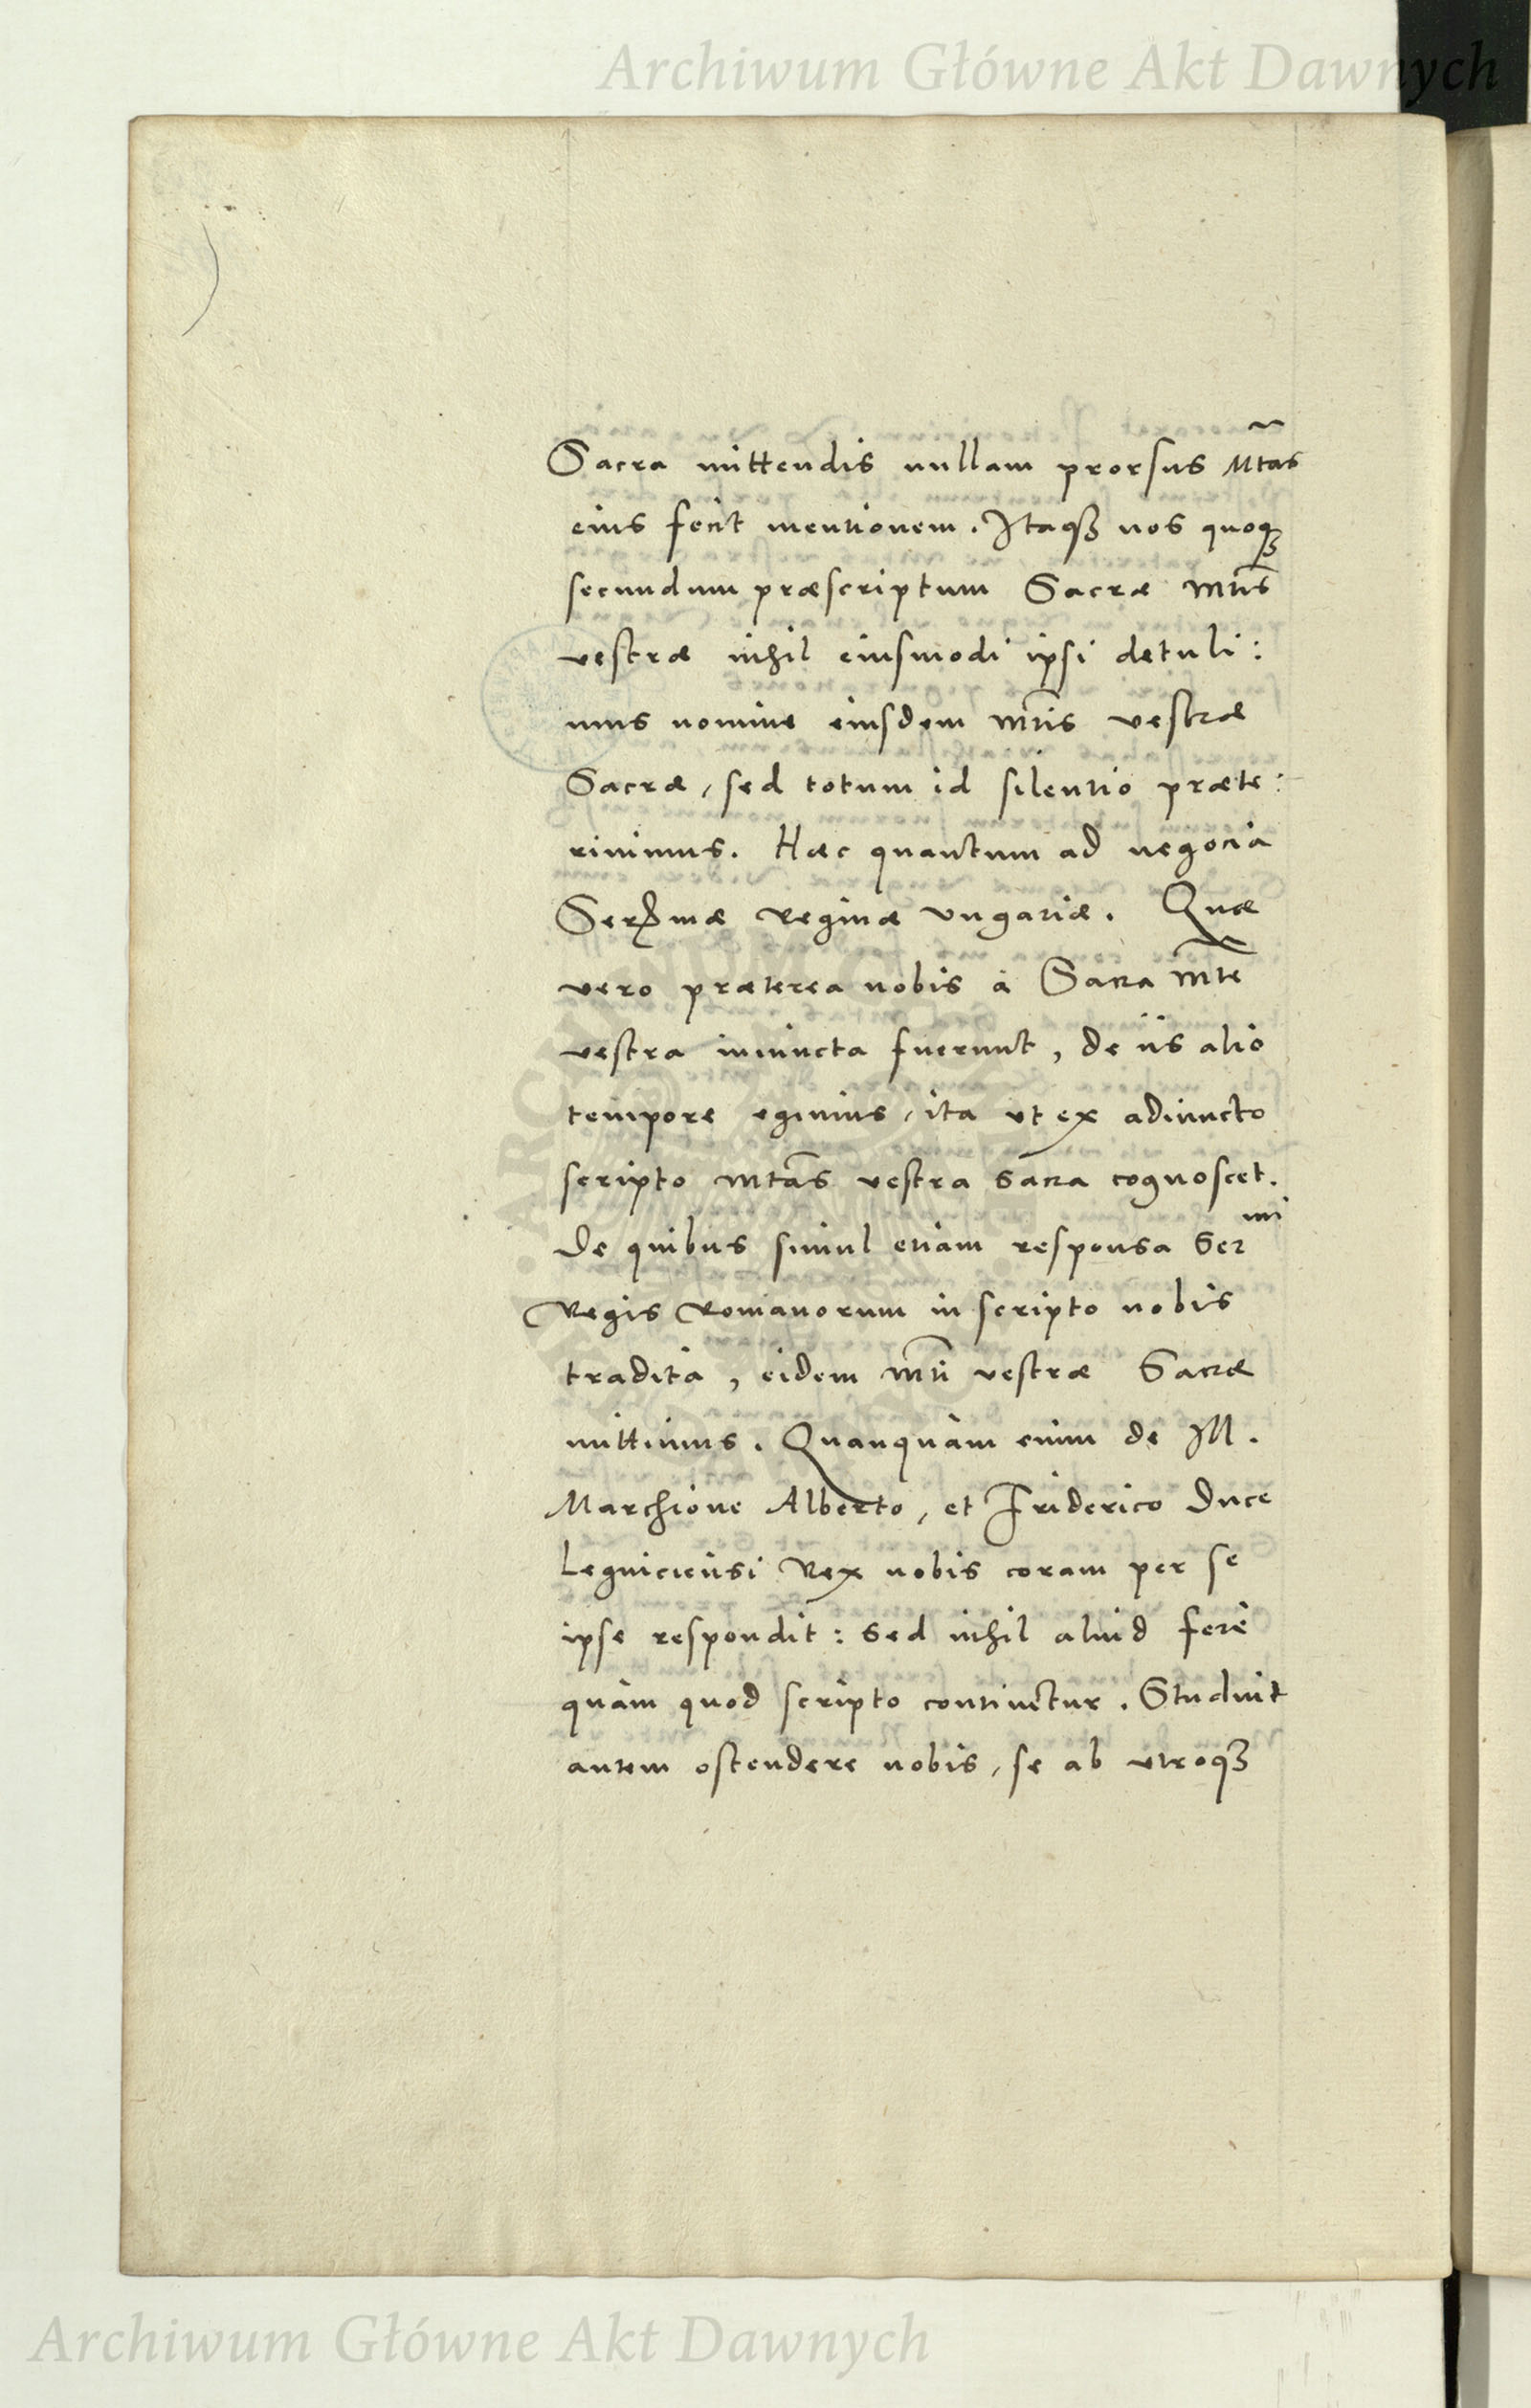 Archiwum Główne Akt Dawnych
Sacra mittendis nullam prorsus Mtas
eius fecit mentionem. Itaqȝ nos quoqȝ
secundum præscriptum Sacræ Mtis
vestræ nihil eiusmodi ipsi detuli:
mus nomine eiusdem Mtis vestræ
Sacræ, sed totum id silentio præte:
riuimus. Hæc quantum ad negocia
Serꝑmæ Reginæ Vngariæ. Quæ
vero præterea nobis à Sacra Mte
vestra iniuncta fuerunt, de iis alio
tempore egimus, ita vt ex adiuncto
scripto Mtas vestra Sacra cognoscet.
De quibus simul etiam responsa Sermi
Regis Romanorum in scripto nobis
tradita, eidem Mti vestræ Sacræ
mittimus. Quanquam enim de Ill.
Marchione Alberto, et Friderico Duce
Legniciensi Rex nobis coram per se
ipse respondit: sed nihil aliud ferè
quàm quod scripto continetur. Studuit
autem ostendere nobis, se ab vtroqȝ
Archiwum Główne Akt Dawnych